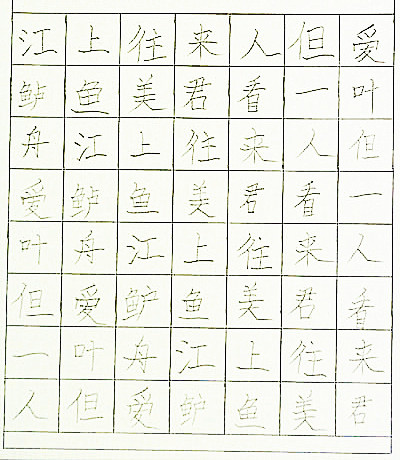 江上往来人但爱
鲈鱼美君看一叶
舟江上往来人但
爱鲈鱼美君看一
叶舟江上往来人
但爱鲈鱼美君看
一叶舟江上往来
人但爱鲈鱼美君